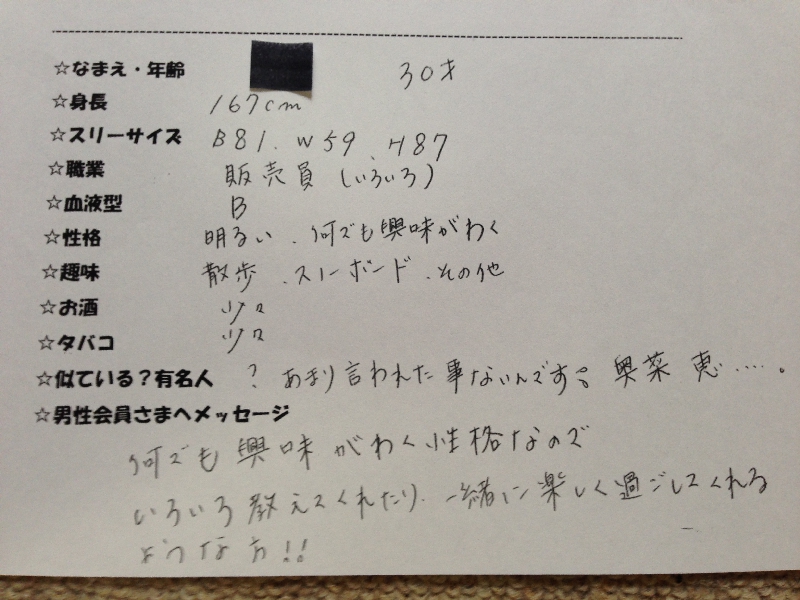 ☆なまえ・年齢 30才
☆身長 167cm
☆スリーサイズ B81. W59. H87
☆職業 販売員(いろいろ)
☆血液型 B
☆性格 明るい、何でも興味がわく
☆趣味 散歩、スノーボード、その他
☆お酒 少々
☆タバコ 少々
☆似ている?有名人 ? あまり言われた事ないんです。奥菜 恵……。
☆男性会員さまへメッセージ
何でも興味がわく性格なので
いろいろ教えてくれたり、一緒に楽しく過ごしてくれる
ような方!!